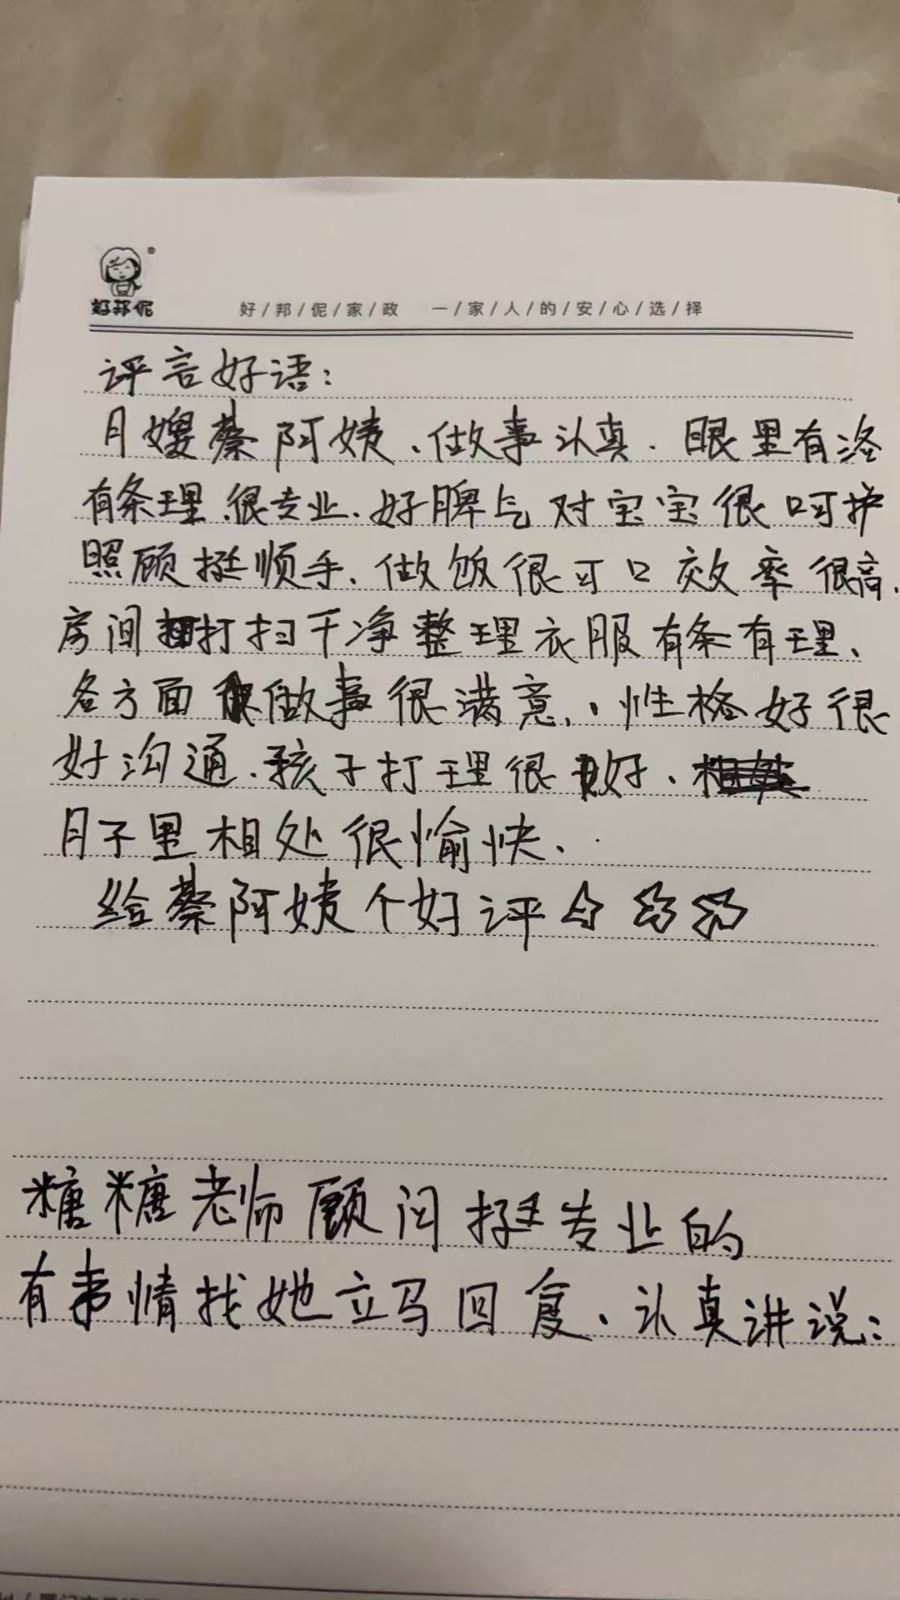 好邦伲
好/邦/伲/家/政 一/家/人/的/安/心/选/择
评言好语：
月嫂蔡阿姨、做事认真.眼里有活
有条理.很专业.好脾气对宝宝很呵护
照顾挺顺手、做饭很可口效率很高.
房间打扫干净整理衣服有条有理、
各方面做事很满意.、性格好很
好沟通.孩子打理很好、
月子里相处很愉快、.
给蔡阿姨个好评☆☆☆
糖糖老师顾问挺专业的
有事情找她立马回复、认真讲说：